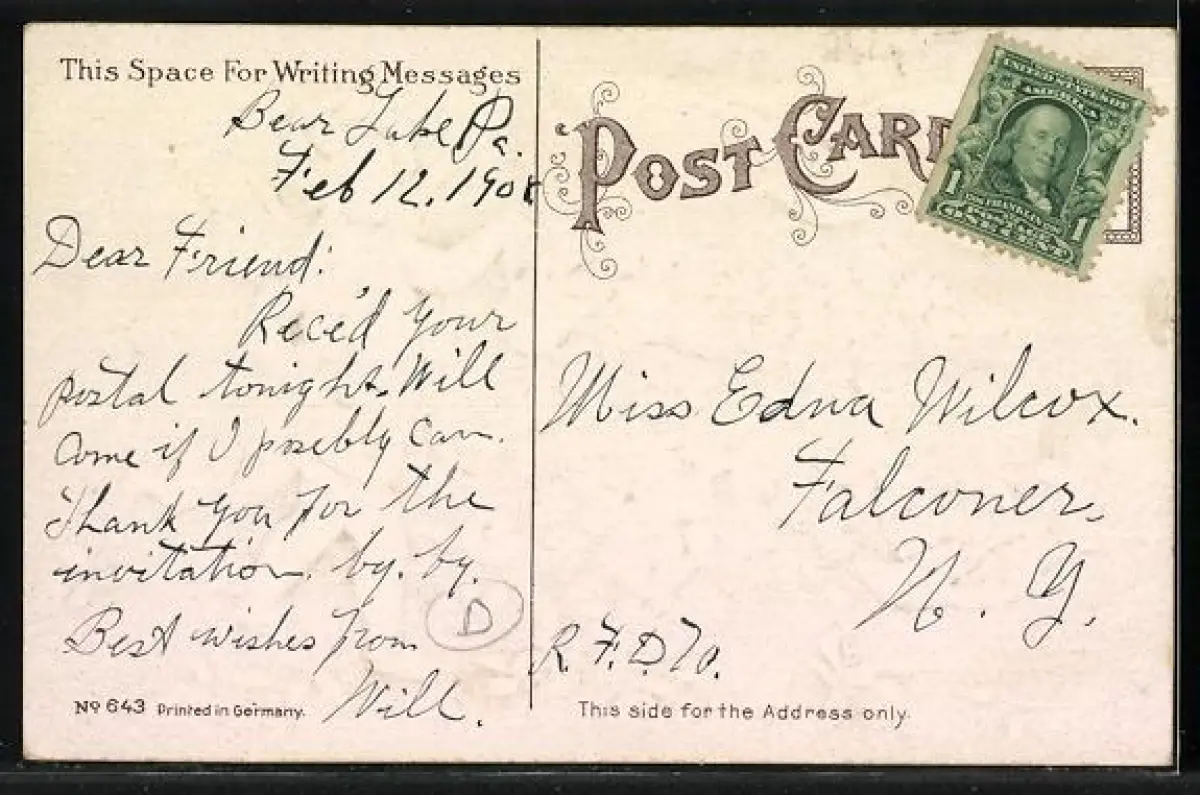 This Space For Writing Messages
Bear Lake Pa.
Feb 12, 1908
Dear Friend:
Rece'd your
postal tonight. Will
come if I posebly can.
Thank you for the
invitation. by. by.
Best wishes from
Will.
D
No 643 Printed in Germany.
POST CARD
UNITED STATES OF
AMERICA
1 1
FRANKLIN
Miss Edna Wilcox.
Falconer,
N. Y.
R. F. D. 70.
This side for the Address only.